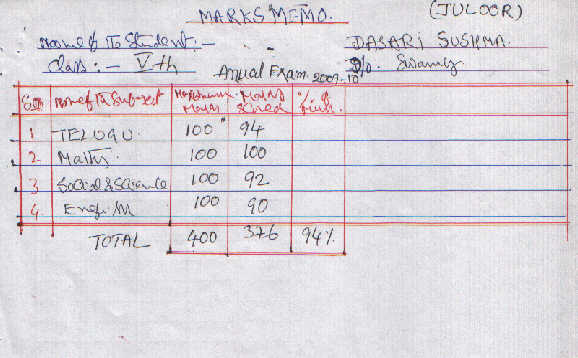 MARKS MEMO. (JULOOR)
Name of The Student:- DASARI SUSHMA.
Class:- Vth D/o. Swamy
Annual Exam. 2009-10
S.No Name of The Subject Maximum Marks Marks Scured %
1 TELUGU. 100 94
2 Maths. 100 100
3 Social & Science 100 92
4. English 100 90
TOTAL 400 376 94%